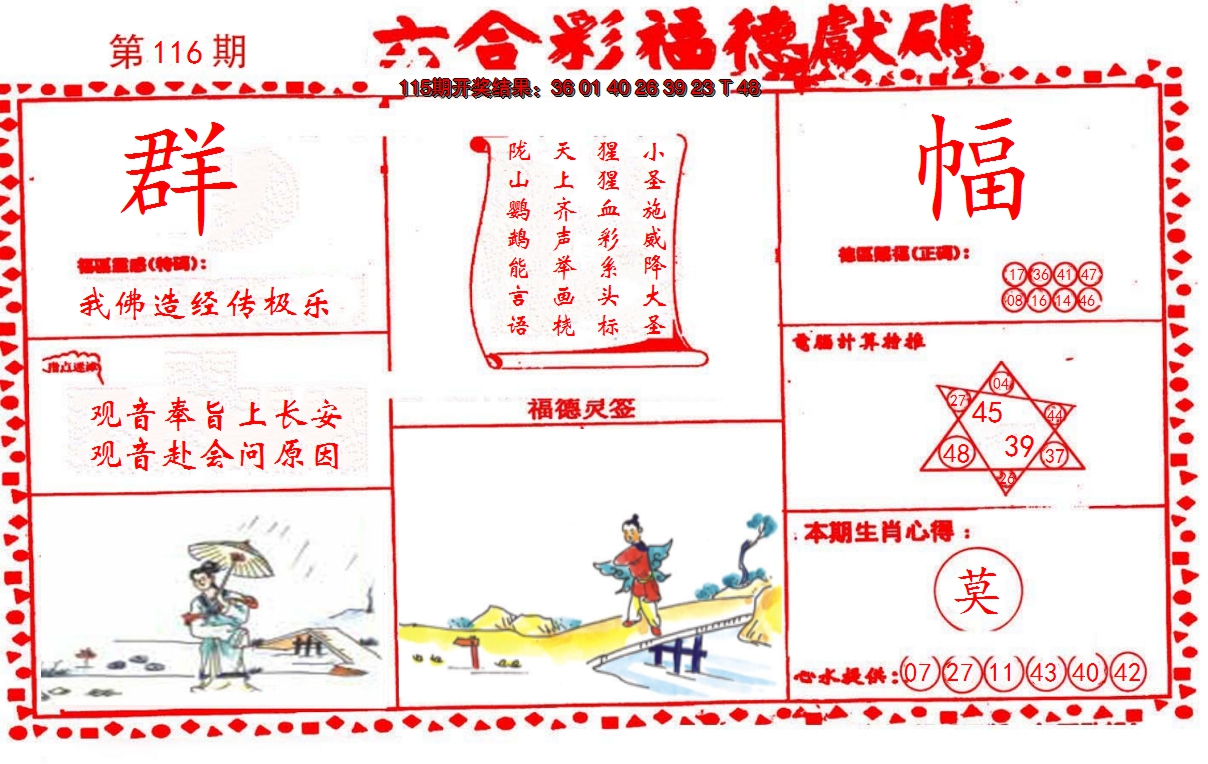 第116期
六合彩福德獻碼
115期开奖结果：36 01 40 26 39 23 T 48
群
福區靈感(特碼)：
我佛造经传极乐
指点迷津
观音奉旨上长安
观音赴会问原因
小圣施威降大圣
猩猩血彩系头标
天上齐声举画桡
陇山鹦鹉能言语
福德灵签
幅
德區賜福(正碼)：
17 36 41 47
08 16 14 46
電腦计算特推
04
27 45 44
48 39 37
26
本期生肖心得：
莫
心水提供：07 27 11 43 40 42